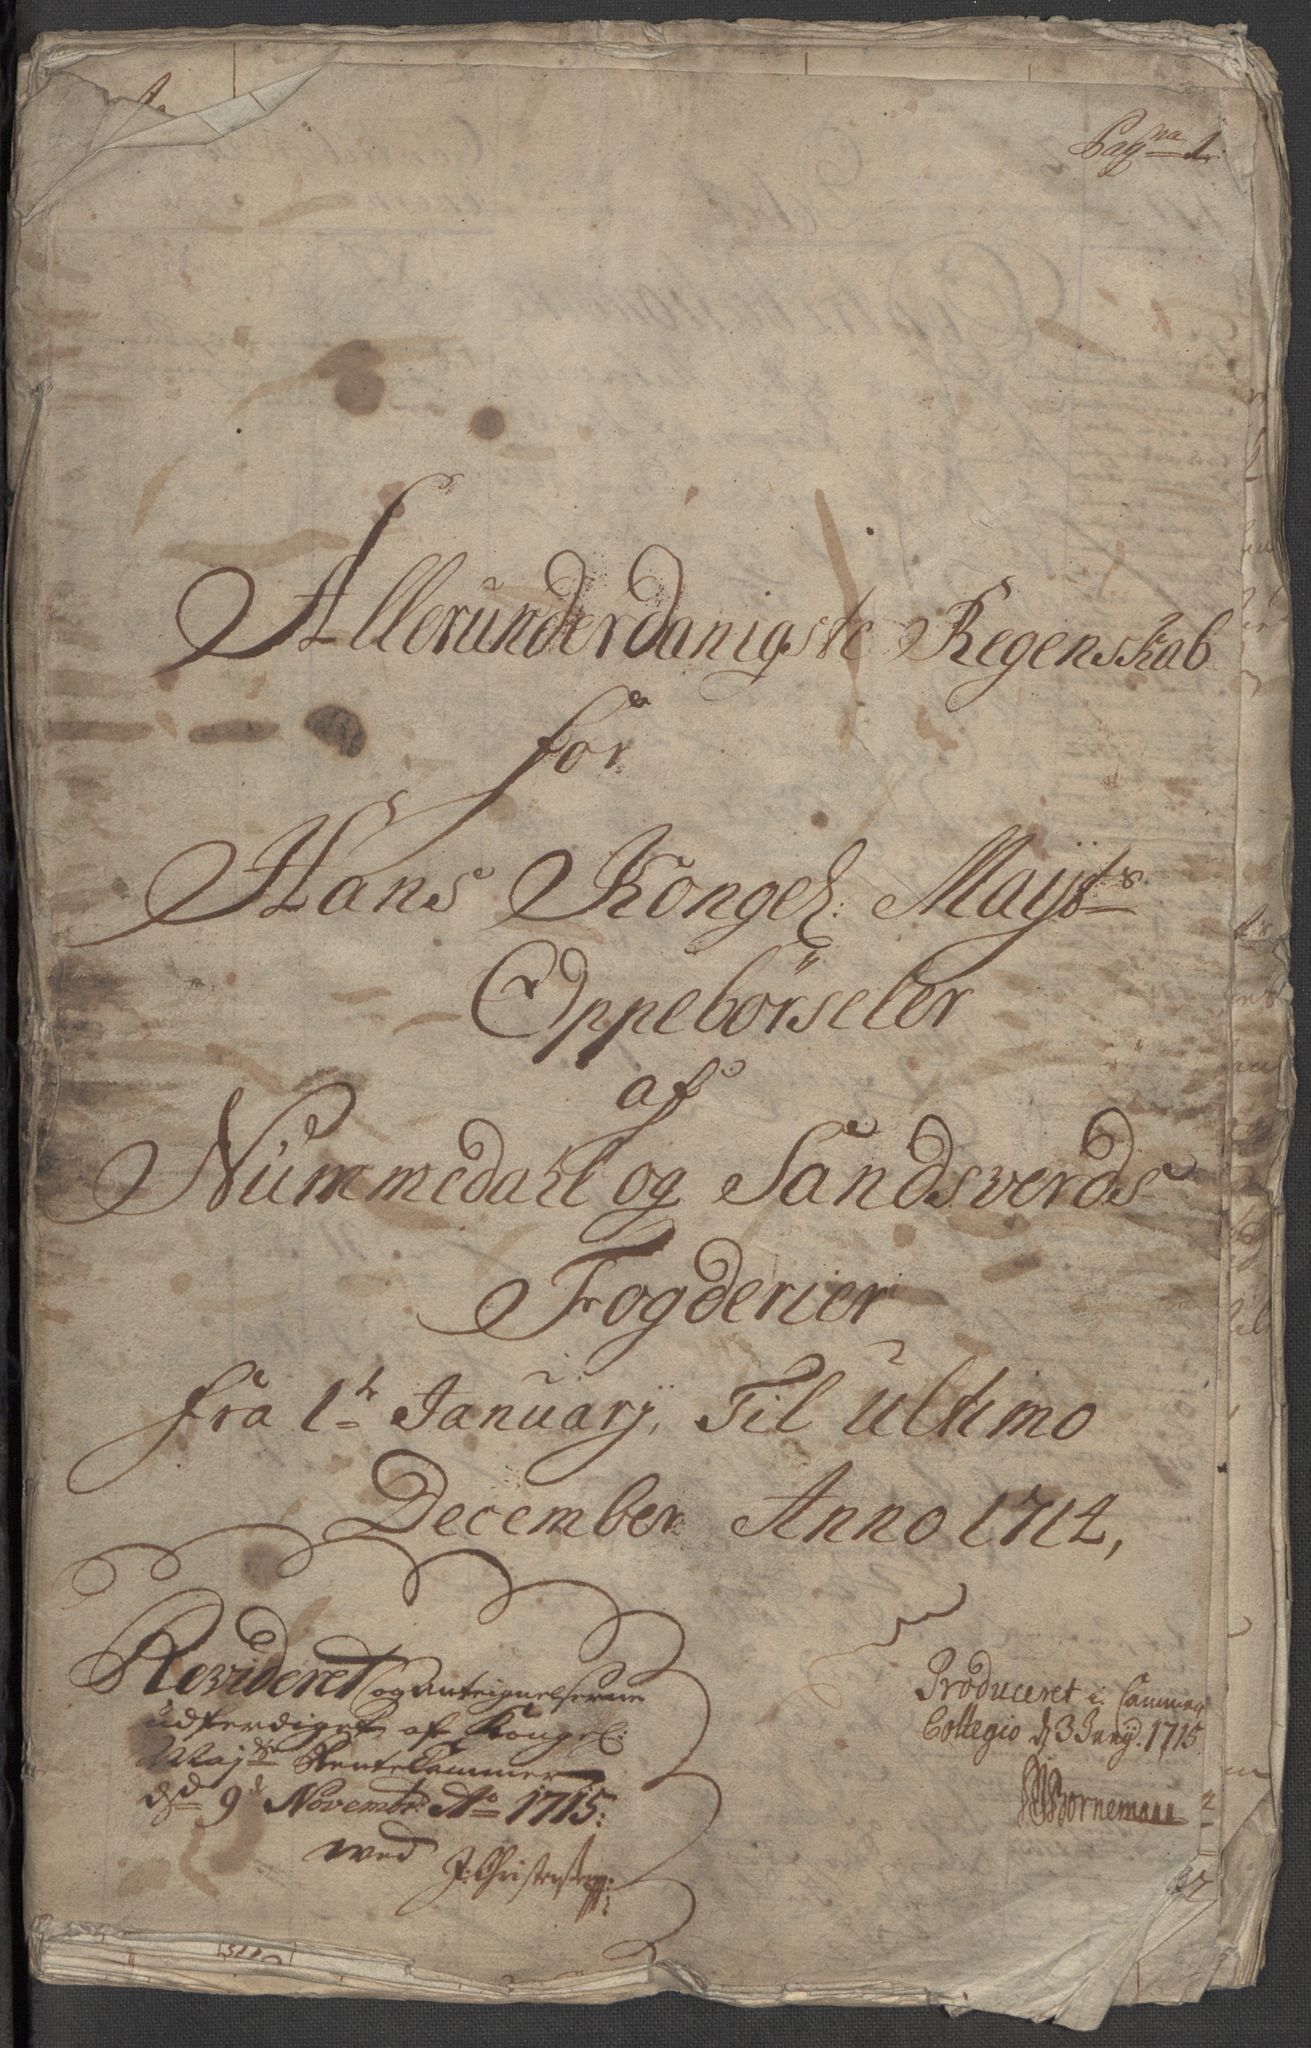 Pag:na 1.
Allerunderdanigste Regenskab
for
Hans Kongel: Mayts
Oppebörseler
af
Nummedahl og Sandsverds
Fogderier
fra 1te January, Til Ultimo
December Anno 1714,
Revideret og Anteignelserne
udferdiget af Kongel:
Majts Rentekammer
d. 9d Novembr: Ao 1715:
wed J: Christensen:
Produceret i Cammer
Collegio d 3 Juny. 1715
Bornemann